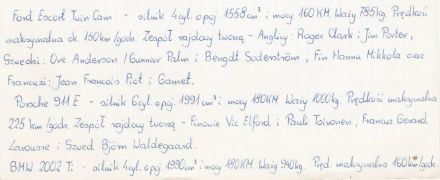 Ford Escort Twin Cam - silnik 4cyl. o poj 1558cm³ i mocy 160 KM. Waży 785kg. Prędkość
maksymalna ok. 150km/godz. Zespół rajdowy tworzą - Anglicy: Roger Clark i Jim Porter,
Szwedzi: Ove Anderson / Gunnar Palm i Bengdt Soderström, Fin Hannu Mikkola oraz
Francuzi: Jean Francois Piot i Gamet.
Porsche 911 E - silnik 6cyl. opoj 1991 cm³ i mocy 180KM Waży 1000kg. Prędkość maksymalna
225 km/godz. Zespół rajdowy tworzą - Finowie Vic Elford i Pauli Toivonen, Francuz Gerard
Larousse i Szwed Björn Waldegaard.
BMW 2002 Ti: - silnik 4cyl. opoj. 1990cm³ i mocy 190KM. Waży 940kg. Pręd. maksymalna 160km/godz.